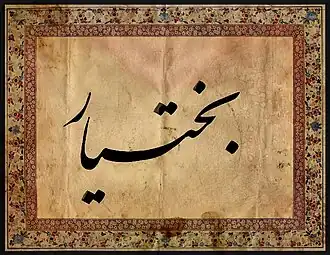 بختیار